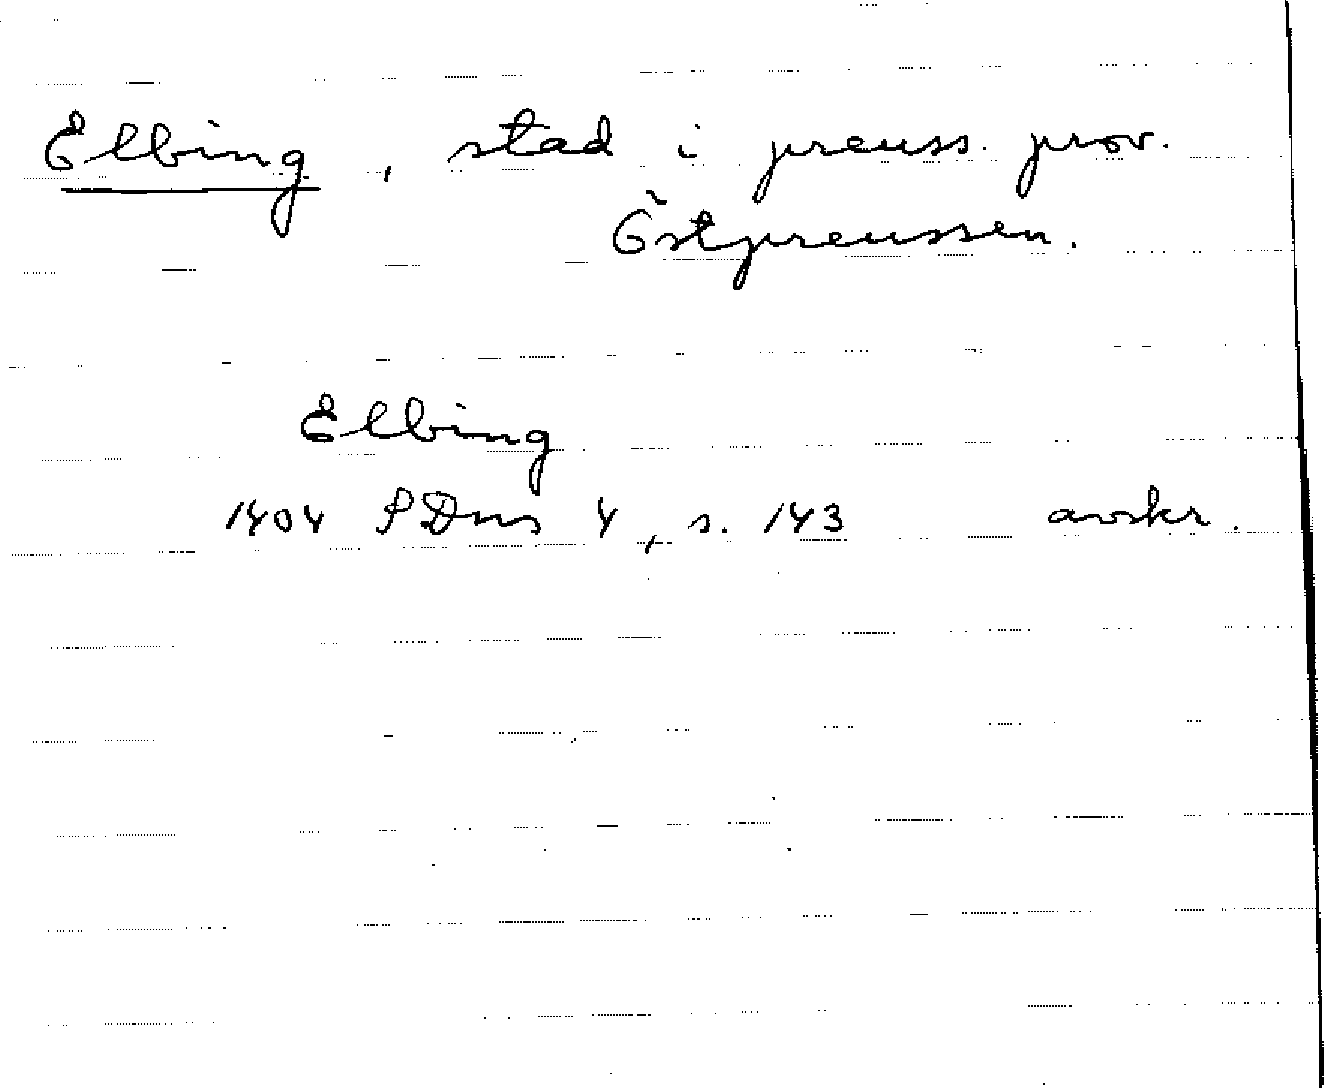 Elbing, stad i preuss. prov.
Östpreussen.
Elbing
1404 SDns 4, s. 143 avskr.